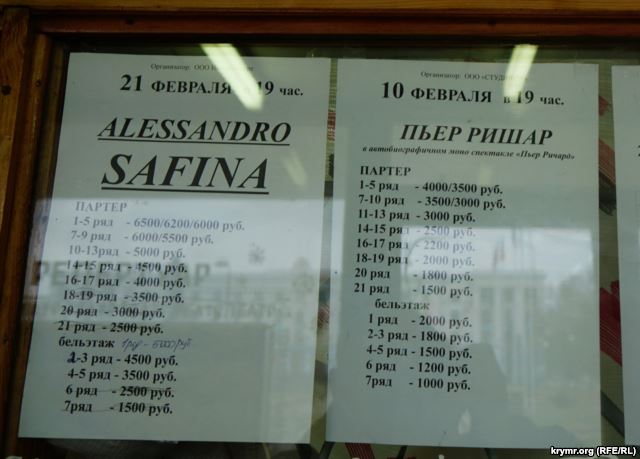 Организатор: ООО
21 ФЕВРАЛЯ в 19 час.
ALESSANDRO
SAFINA
ПАРТЕР
1-5 ряд - 6500/6200/6000 руб.
7-9 ряд - 6000/5500 руб.
10-13ряд - 5000 руб.
14-15 ряд - 4500 руб.
16-17 ряд - 4000 руб.
18-19 ряд - 3500 руб.
20 ряд - 3000 руб.
21 ряд - 2500 руб.
бельэтаж 1 ряд - 5000 руб.
2-3 ряд - 4500 руб.
4-5 ряд - 3500 руб.
6 ряд - 2500 руб.
7ряд - 1500 руб.
Организатор: ООО «СТУДИЯ
10 ФЕВРАЛЯ в 19 час.
ПЬЕР РИШАР
в автобиографичном моно спектакле «Пьер Ричард»
ПАРТЕР
1-5 ряд - 4000/3500 руб.
7-10 ряд - 3500/3000 руб.
11-13 ряд - 3000 руб.
14-15 ряд - 2500 руб.
16-17 ряд - 2200 руб.
18-19 ряд - 2000 руб.
20 ряд - 1800 руб.
21 ряд - 1500 руб.
бельэтаж
1 ряд - 2000 руб.
2-3 ряд - 1800 руб.
4-5 ряд - 1500 руб.
6 ряд - 1200 руб.
7ряд - 1000 руб.
krymr.org (RFE/RL)